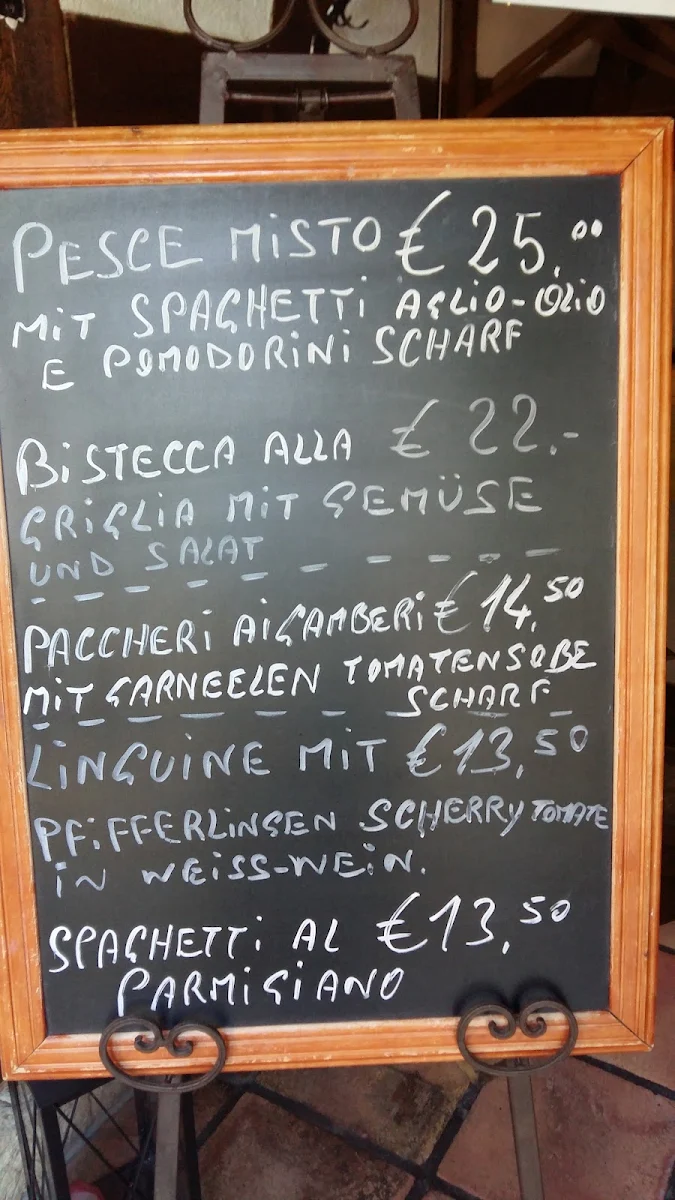 PESCE MISTO € 25,00
MIT SPAGHETTI AGLIO-OLIO
E POMODORINI SCHARF
BISTECCA ALLA € 22.-
GRIGLIA MIT GEMÜSE
UND SALAT
PACCHERI AI GAMBERI € 14,50
MIT GARNEELEN TOMATENSOBE
SCHARF
LINGUINE MIT € 13,50
PFIFFERLINGEN SCHERRY TOMATE
IN WEISS-WEIN.
SPAGHETTI AL € 13,50
PARMIGIANO